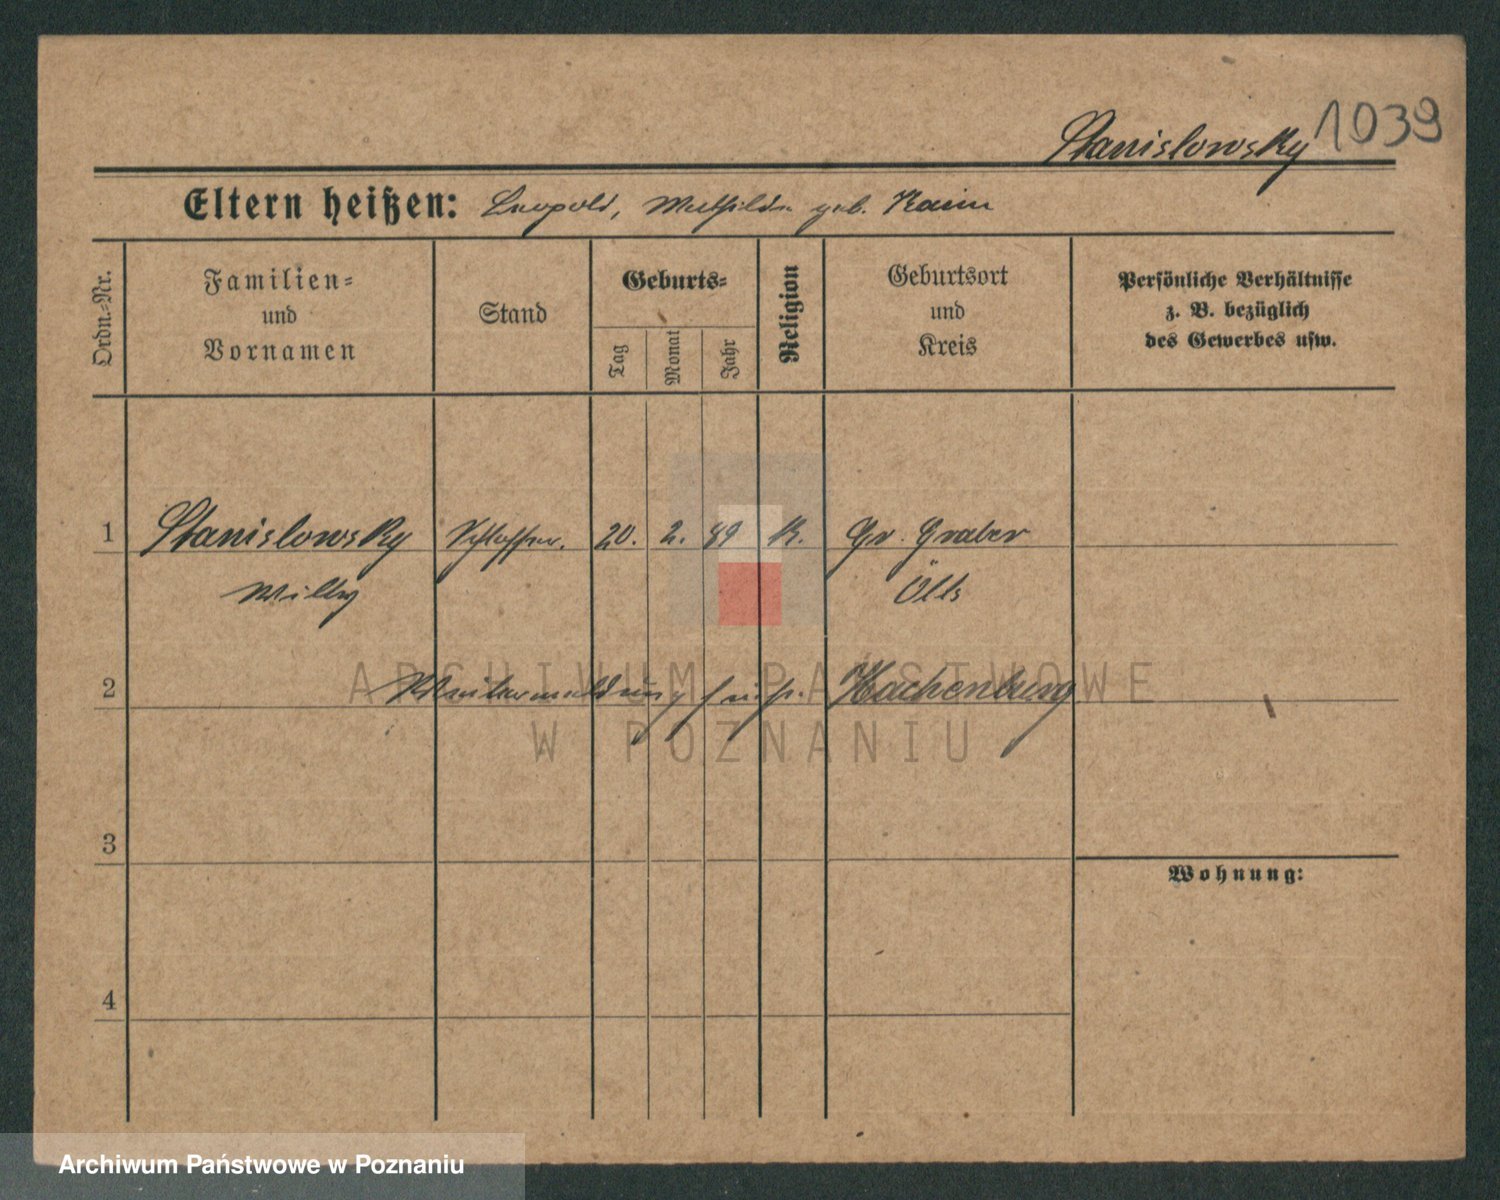 Stanislowsky 1039
Eltern heißen: Leopold, Mathilde geb. Kaim
Ordn.-Nr.
Familien-
und
Vornamen
Stand
Geburts-
Tag
Monat
Jahr
Religion
Geburtsort
und
Kreis
Persönliche Verhältnisse
z. B. bezüglich
des Gewerbes usw.
1 Stanislowsky Schlosser. 20. 2. 89 K. Gr. Graber
Willy Öls
2 Weitermeldung Hachenburg
3
Wohnung:
4
ARCHIWUM PAŃSTWOWE
W POZNANIU
Archiwum Państwowe w Poznaniu